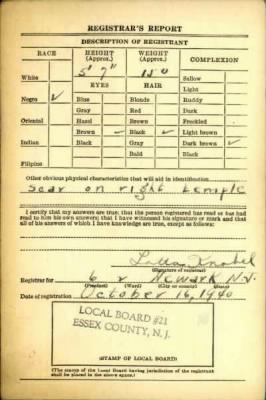 REGISTRAR'S REPORT
DESCRIPTION OF REGISTRANT
RACE HEIGHT (Approx.) WEIGHT (Approx.) COMPLEXION
White 5' 7" 150 Sallow
EYES HAIR Light
Negro ✓ Blue Blonde Ruddy
Gray Red Dark
Oriental Hazel Brown Freckled
Brown ✓ Black ✓ Light brown
Indian Black Gray Dark brown ✓
Bald Black
Filipino
Other obvious physical characteristics that will aid in identification
Scar on right temple
I certify that my answers are true; that the person registered has read or has had
read to him his own answers; that I have witnessed his signature or mark and that
all of his answers of which I have knowledge are true, except as follows:
(Signature of registrar)
Registrar for 6 2 Newark N.J.
(Precinct) (Ward) (City or county) (State)
Date of registration October 16, 1940
LOCAL BOARD #21
ESSEX COUNTY, N. J.
(STAMP OF LOCAL BOARD)
(The stamp of the Local Board having jurisdiction of the registrant
shall be placed in the above space.)